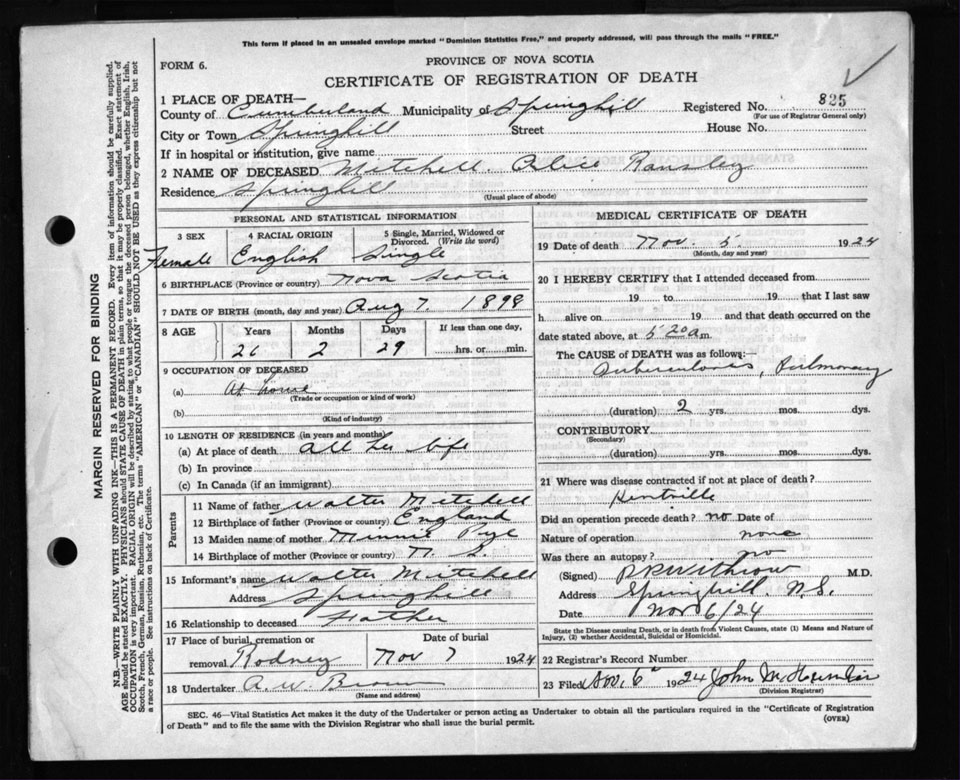 This form if placed in an unsealed envelope marked "Dominion Statistics Free," and properly addressed, will pass through the mails "FREE."
FORM 6.
PROVINCE OF NOVA SCOTIA
CERTIFICATE OF REGISTRATION OF DEATH
1 PLACE OF DEATH—
County of Cumberland Municipality of Springhill Registered No. 825
(For use of Registrar General only)
City or Town Springhill Street House No.
If in hospital or institution, give name
2 NAME OF DECEASED Mitchell. Alice
Residence Springhill
(Usual place of abode)
PERSONAL AND STATISTICAL INFORMATION
3 SEX 4 RACIAL ORIGIN 5 Single, Married, Widowed or Divorced. (Write the word)
Female English Single
6 BIRTHPLACE (Province or country) Nova Scotia
7 DATE OF BIRTH (month, day and year) Aug 7. 1898
8 AGE Years Months Days If less than one day,
26 2 29 hrs. or min.
9 OCCUPATION OF DECEASED
(a) At home
(Trade or occupation or kind of work)
(b)
(Kind of industry)
10 LENGTH OF RESIDENCE (in years and months)
(a) At place of death all her life
(b) In province
(c) In Canada (if an immigrant)
Parents
11 Name of father Walter Mitchell
12 Birthplace of father (Province or country) England
13 Maiden name of mother Minnie Pye
14 Birthplace of mother (Province or country) N. S.
15 Informant's name Walter Mitchell
Address Springhill
16 Relationship to deceased Father
17 Place of burial, cremation or Date of burial
removal Rodney Nov 7 1924
18 Undertaker A. W. Brown
(Name and address)
MEDICAL CERTIFICATE OF DEATH
19 Date of death Nov. 5. 1924
(Month, day and year)
20 I HEREBY CERTIFY that I attended deceased from
19 to 19 that I last saw
h alive on 19 and that death occurred on the
date stated above, at 5 20 a m.
The CAUSE of DEATH was as follows:
Tuberculosis, Pulmonary
(duration) 2 yrs. mos. dys.
CONTRIBUTORY
(Secondary)
(duration) yrs. mos. dys.
21 Where was disease contracted if not at place of death?
Kentville
Did an operation precede death? no Date of
Nature of operation none
Was there an autopsy? no
(Signed) Withrow M.D.
Address Springhill. N.S.
Date Nov 6/24
State the Disease causing Death, or in death from Violent Causes, state (1) Means and Nature of Injury, (2) whether Accidental, Suicidal or Homicidal.
22 Registrar's Record Number
23 Filed Nov. 6" 1924 John
(Division Registrar)
SEC. 46—Vital Statistics Act makes it the duty of the Undertaker or person acting as Undertaker to obtain all the particulars required in the "Certificate of Registration
of Death" and to file the same with the Division Registrar who shall issue the burial permit. (OVER)
MARGIN RESERVED FOR BINDING
N.B.—WRITE PLAINLY WITH UNFADING INK—THIS IS A PERMANENT RECORD. Every item of information should be carefully supplied.
AGE should be stated EXACTLY. PHYSICIANS should STATE CAUSE OF DEATH in plain terms, so that it may be properly classified. Exact statement of
OCCUPATION is very important. RACIAL ORIGIN will be described by stating to what people or tongue the deceased person belonged, whether English, Irish,
Scotch, French, German, Russian, Ruthenian, etc. The terms "AMERICAN" or "CANADIAN" SHOULD NOT BE USED as they express citizenship but not
a race or people. See instructions on back of Certificate.